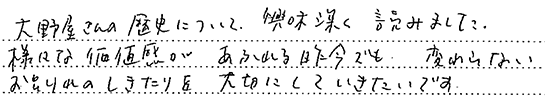 大野屋さんの歴史について、興味深く読みました。
様々な価値感があふれる昨今でも、変わらない
お造りのしきたりを大切にしていきたいです